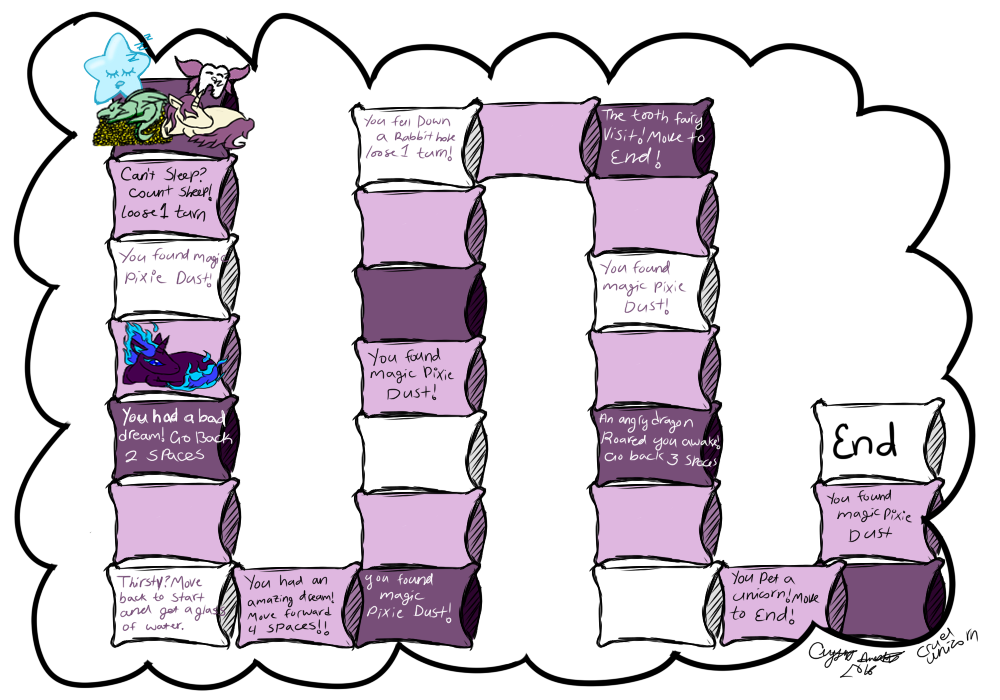 z
z
z
z
Can't Sleep?
Count Sheep!
loose 1 turn
You found magic
Pixie Dust!
You had a bad
dream! Go Back
2 Spaces
Thirsty? Move
back to Start
and get a glass
of water.
You had an
amazing dream!
Move forward
4 Spaces!!
you found
magic
Pixie Dust!
You found
magic Pixie
Dust!
You fell Down
a Rabbit hole
loose 1 turn!
The tooth fairy
Visit! Move to
End!
You found
magic Pixie
Dust!
An angry dragon
Roared you awake!
Go back 3 Spaces
You Pet a
unicorn! Move
to End!
You found
magic Pixie
Dust
End
Cruel
Unicorn